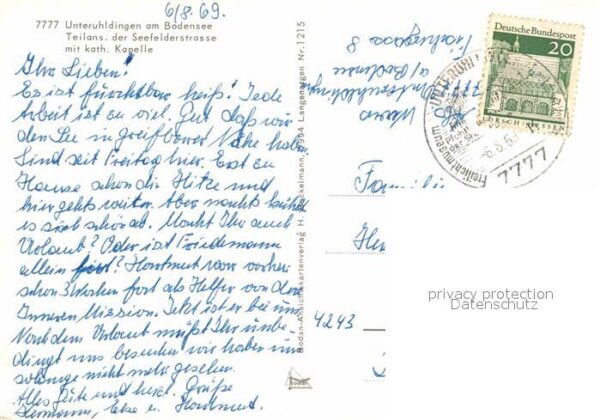 6/8.69.
7777 Unteruhldingen am Bodensee
Teilans. der Seefelderstrasse
mit kath. Kapelle
Ihr Lieben!
Es ist furchtbar heiß! Jede
Arbeit ist zu viel. Gut daß wir
den See in greifbarer Nähe haben
Sind seit Freitag hier. Erst zu
Hause schon die Hitze und
hier gehts weiter. Aber nachts kühlt
es sich schön ab. Macht Ihr auch
Urlaub? Oder ist Friedemann
allein fort? Hartmut war vorher
schon 3 Wochen fort als Helfer von der
Inneren Mission. Jetzt ist er bei uns
Nach dem Urlaub müßt Ihr unbe-
dingt uns besuchen wir haben uns
solange nicht mehr gesehen.
Alles Gute und herzl. Grüße
Hermann, Else u. Hartmut.
Bodan-Ansichtskartenverlag H. Nackelmann, 8994 Langenargen Nr. 1215
bodan
7777 Unteruhldingen
a/Bodensee
Deutsche Bundespost
20
LORSCH/HESSEN
UNTERUHL
Freilichtmuseum
7777
Familie
4243
privacy protection
Datenschutz